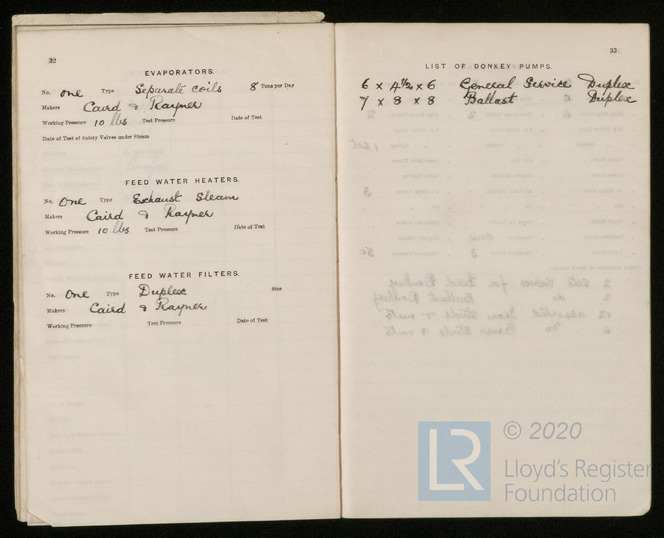 32
EVAPORATORS.
No. One Type Separate Coils 8 Tons per Day
Makers Caird & Rayner
Working Pressure 10 lbs Test Pressure Date of Test
Date of Test of Safety Valves under Steam
FEED WATER HEATERS.
No. One Type Exhaust Steam
Makers Caird & Rayner
Working Pressure 10 lbs Test Pressure Date of Test
FEED WATER FILTERS.
No. One Type Duplex Size
Makers Caird & Rayner
Working Pressure Test Pressure Date of Test
33
LIST OF DONKEY PUMPS.
6 x 4½ x 6 General Service Duplex
7 x 8 x 8 Ballast Duplex
LR © 2020
Lloyd's Register
Foundation